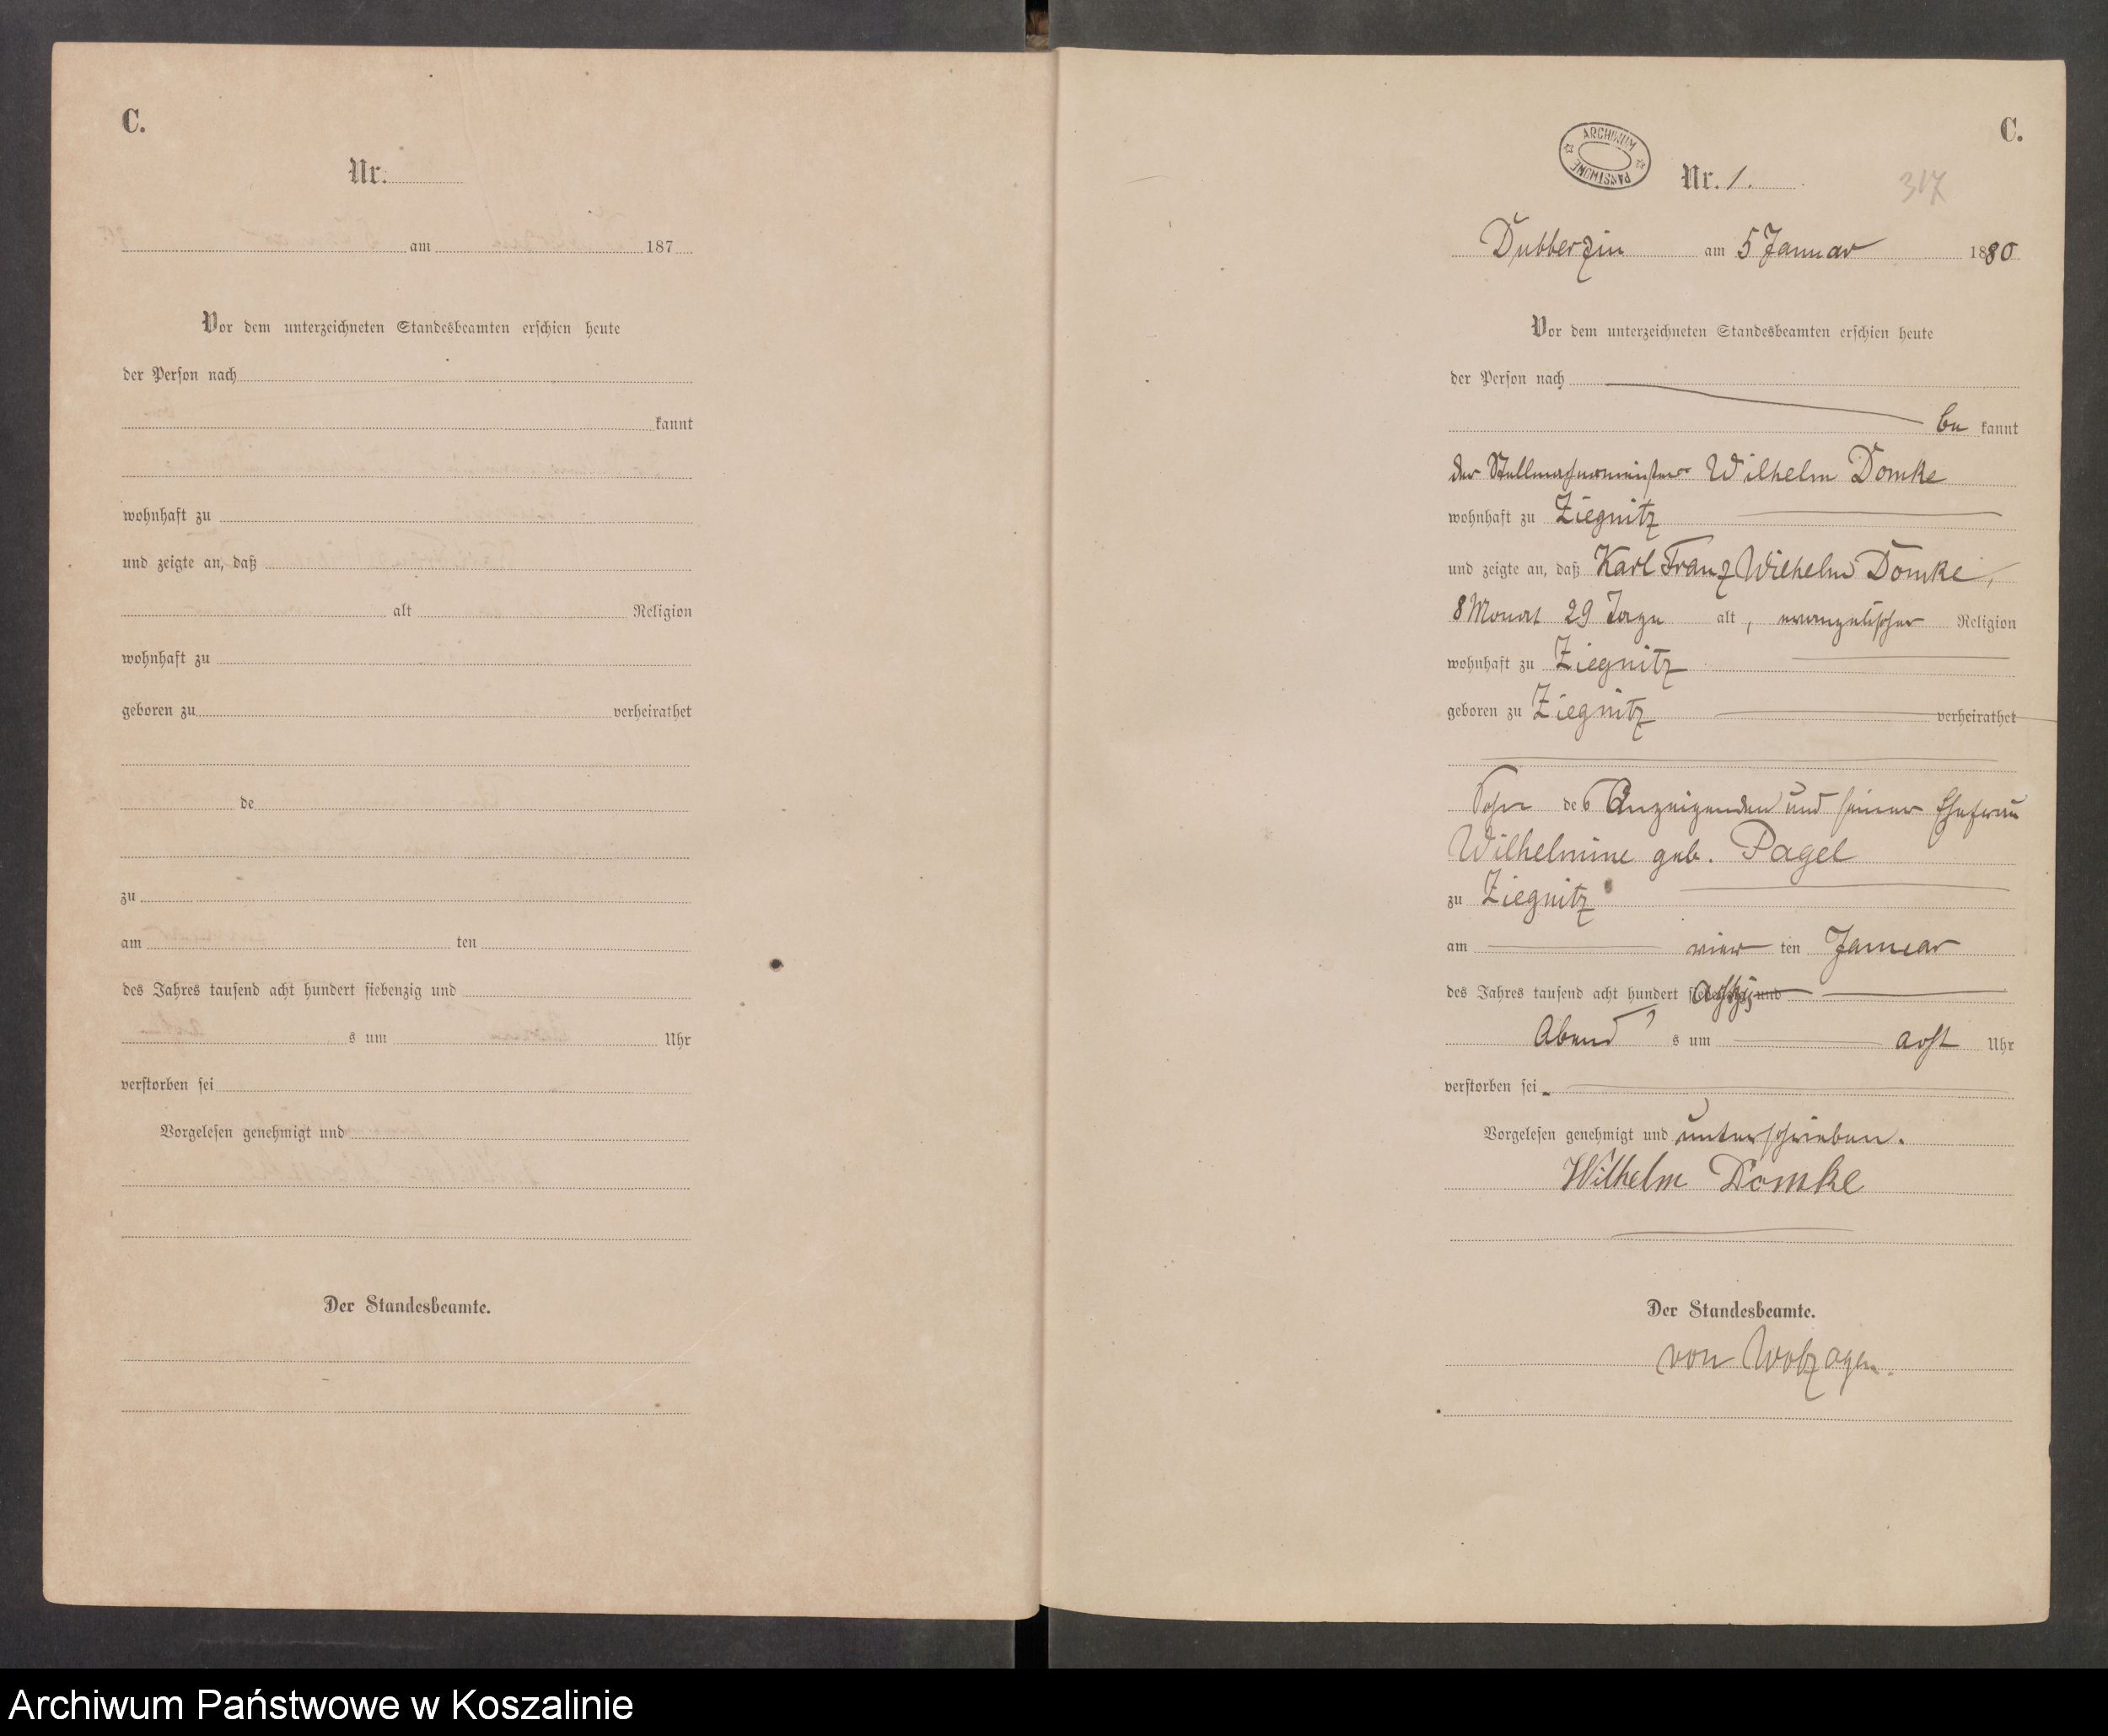 C.
Nr.
am 187
Vor dem unterzeichneten Standesbeamten erschien heute
der Person nach
kannt
wohnhaft zu
und zeigte an, daß
alt Religion
wohnhaft zu
geboren zu verheirathet
de
zu
am ten
des Jahres tausend acht hundert siebenzig und
s um Uhr
verstorben sei
Vorgelesen genehmigt und
Der Standesbeamte.
C.
ARCHIWUM PAŃSTWOWE
Nr. 1.
317
Dubberzin am 5 Januar 1880
Vor dem unterzeichneten Standesbeamten erschien heute
der Person nach
be kannt
der Stellmachermeister Wilhelm Domke
wohnhaft zu Ziegnitz
und zeigte an, daß Karl Franz Wilhelm Domke,
8 Monat 29 Tage alt, evangelischer Religion
wohnhaft zu Ziegnitz
geboren zu Ziegnitz verheirathet
Sohn des Anzeigenden und seiner Ehefrau
Wilhelmine geb. Pagel
zu Ziegnitz
am vier ten Januar
des Jahres tausend acht hundert achtzig und
Abend s um acht Uhr
verstorben sei.
Vorgelesen genehmigt und unterschrieben.
Wilhelm Domke
Der Standesbeamte.
von Wolzogen.
Archiwum Państwowe w Koszalinie